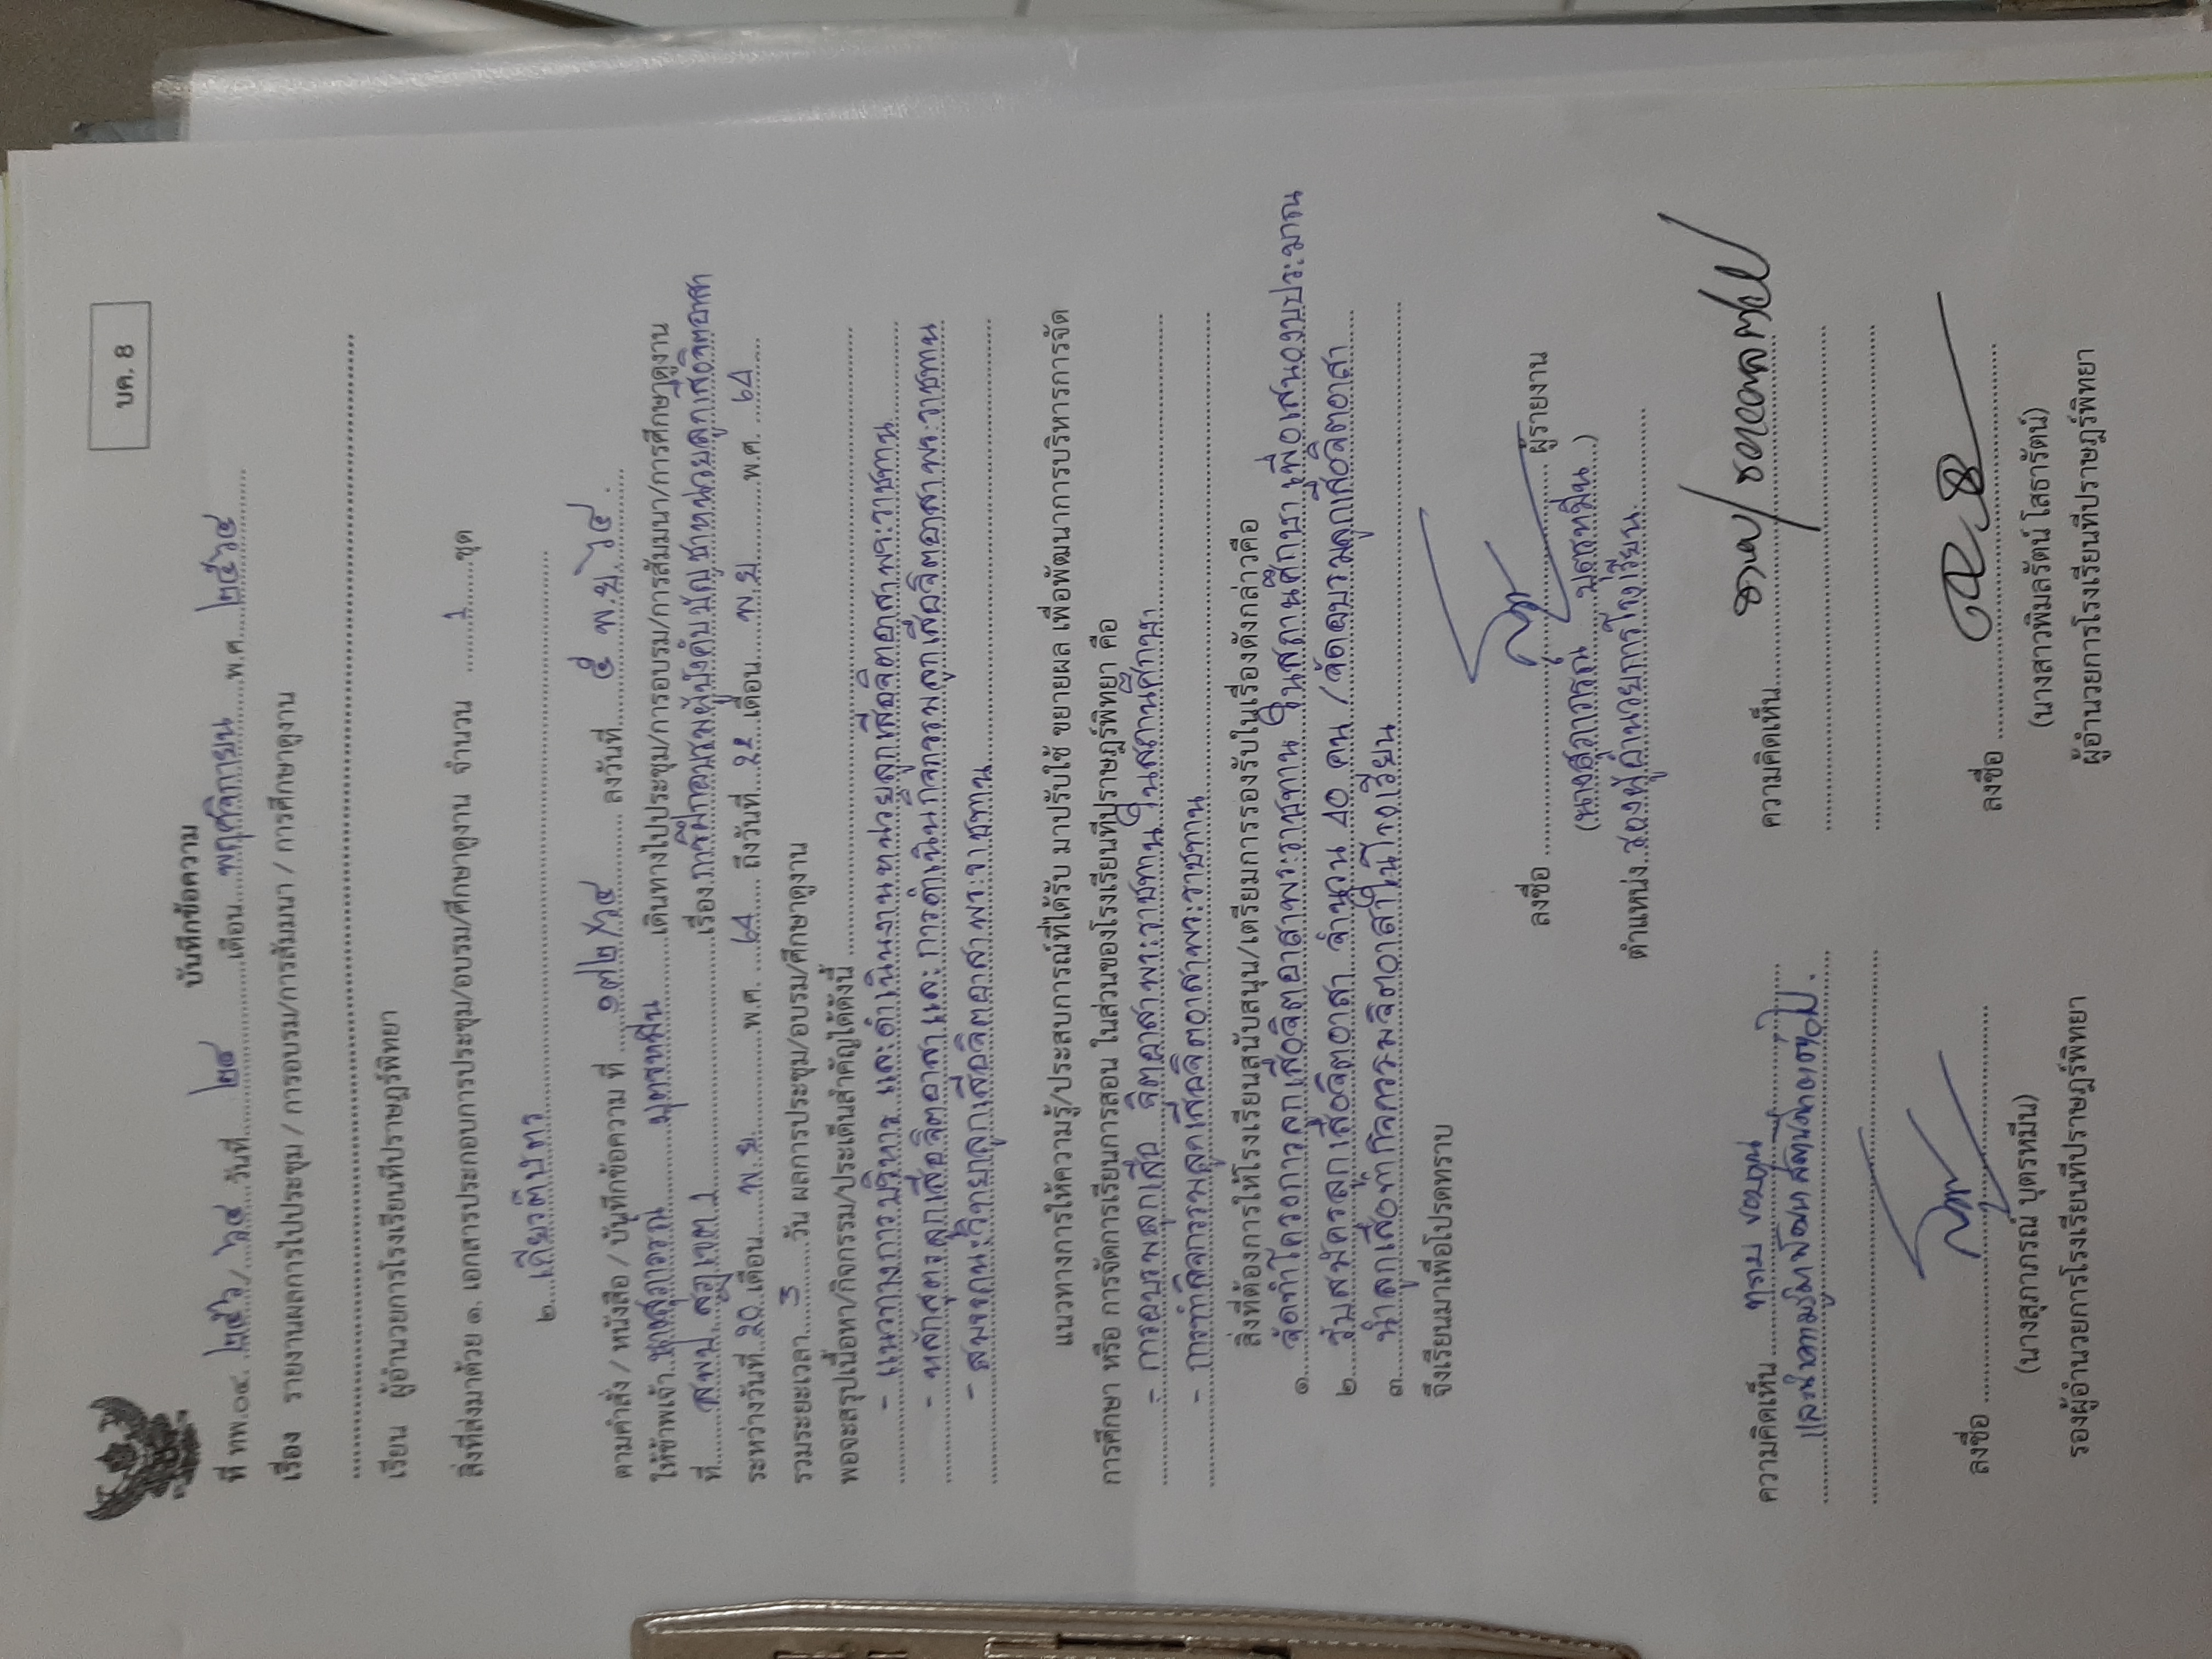 บค. 8
บันทึกข้อความ
ที่ ทพ.๐๔. ๒๕๖/๖๔ วันที่ ๒๔ เดือน พฤศจิกายน พ.ศ. ๒๕๖๔
เรื่อง รายงานผลการไปประชุม / การอบรม/การสัมมนา / การศึกษาดูงาน
เรียน ผู้อำนวยการโรงเรียนทีปราษฎร์พิทยา
สิ่งที่ส่งมาด้วย ๑. เอกสารประกอบการประชุม/อบรม/ศึกษาดูงาน จำนวน 1 ชุด
๒. เกียรติบัตร
ตามคำสั่ง / หนังสือ / บันทึกข้อความ ที่ ๑๗๒/๖๔ ลงวันที่ ๕ พ.ย. ๖๔.
ให้ข้าพเจ้า นางสุภาภรณ์ บุตรหมีน เดินทางไปประชุม/การอบรม/การสัมมนา/การศึกษาดูงาน
ที่ สพป. สฎ เขต 1 เรื่อง การฝึกอบรมผู้บังคับบัญชาหน่วยลูกเสือจิตอาสา
ระหว่างวันที่ 20 เดือน พ.ย. พ.ศ. 64 ถึงวันที่ 22 เดือน พ.ย. พ.ศ. 64
รวมระยะเวลา 3 วัน ผลการประชุม/อบรม/ศึกษาดูงาน
พอจะสรุปเนื้อหา/กิจกรรม/ประเด็นสำคัญได้ดังนี้
- แนวทางการบริหาร และดำเนินงานหน่วยลูกเสือจิตอาสาพระราชทาน
- หลักสูตรลูกเสือจิตอาสา และการดำเนินกิจกรรมลูกเสือจิตอาสาพระราชทาน
- สมรรถนะวิทยาลูกเสือจิตอาสาพระราชทาน
แนวทางการให้ความรู้/ประสบการณ์ที่ได้รับ มาปรับใช้ ขยายผล เพื่อพัฒนาการบริหารการจัด
การศึกษา หรือ การจัดการเรียนการสอน ในส่วนของโรงเรียนทีปราษฎร์พิทยา คือ
- การอบรมลูกเสือ จิตอาสาพระราชทาน ในสถานศึกษา
- การทำกิจกรรมลูกเสือจิตอาสาพระราชทาน
สิ่งที่ต้องการให้โรงเรียนสนับสนุน/เตรียมการรองรับในเรื่องดังกล่าวคือ
๑. จัดทำโครงการลูกเสือจิตอาสาพระราชทาน ในสถานศึกษา เพื่อเสนองบประมาณ
๒. รับสมัครลูกเสือจิตอาสา จำนวน 40 คน / จัดอบรมลูกเสือจิตอาสา
๓. นำลูกเสือทำกิจกรรมจิตอาสาในโรงเรียน
จึงเรียนมาเพื่อโปรดทราบ
ลงชื่อ ผู้รายงาน
(นางสุภาภรณ์ บุตรหมีน)
ตำแหน่ง รองผู้อำนวยการโรงเรียน
ความคิดเห็น ทราบ ขอบคุณ
ความคิดเห็น
ลงชื่อ
(นางสุภาภรณ์ บุตรหมีน)
รองผู้อำนวยการโรงเรียนทีปราษฎร์พิทยา
ลงชื่อ
(นางสาวพิมลรัตน์ โสธารัตน์)
ผู้อำนวยการโรงเรียนทีปราษฎร์พิทยา